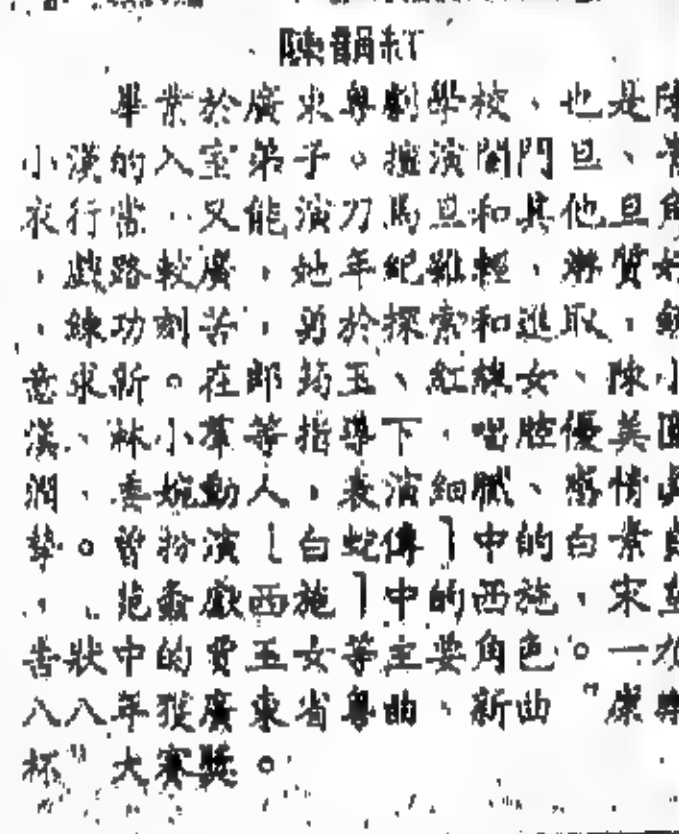 陳韻紅
畢業於廣東粵劇學校、也是陳
小漢的入室弟子。擅演閨門旦、青
衣行當、又能演刀馬旦和其他旦角
，戲路較廣，她年紀雖輕，質好
，練功刻苦，勇於探索和進取，銳
意求新。在郎筠玉、紅線女、陳小
漢、林小群等指導下，唱腔優美圓
潤、委婉動人，表演細膩、感情真
摯。曾扮演〔白蛇傳〕中的白素貞
、〔范蠡獻西施〕中的西施，宋皇
告狀中的賣玉女等主要角色。一九
八八年獲廣東省粵曲、新曲"康樂
杯"大賽獎。